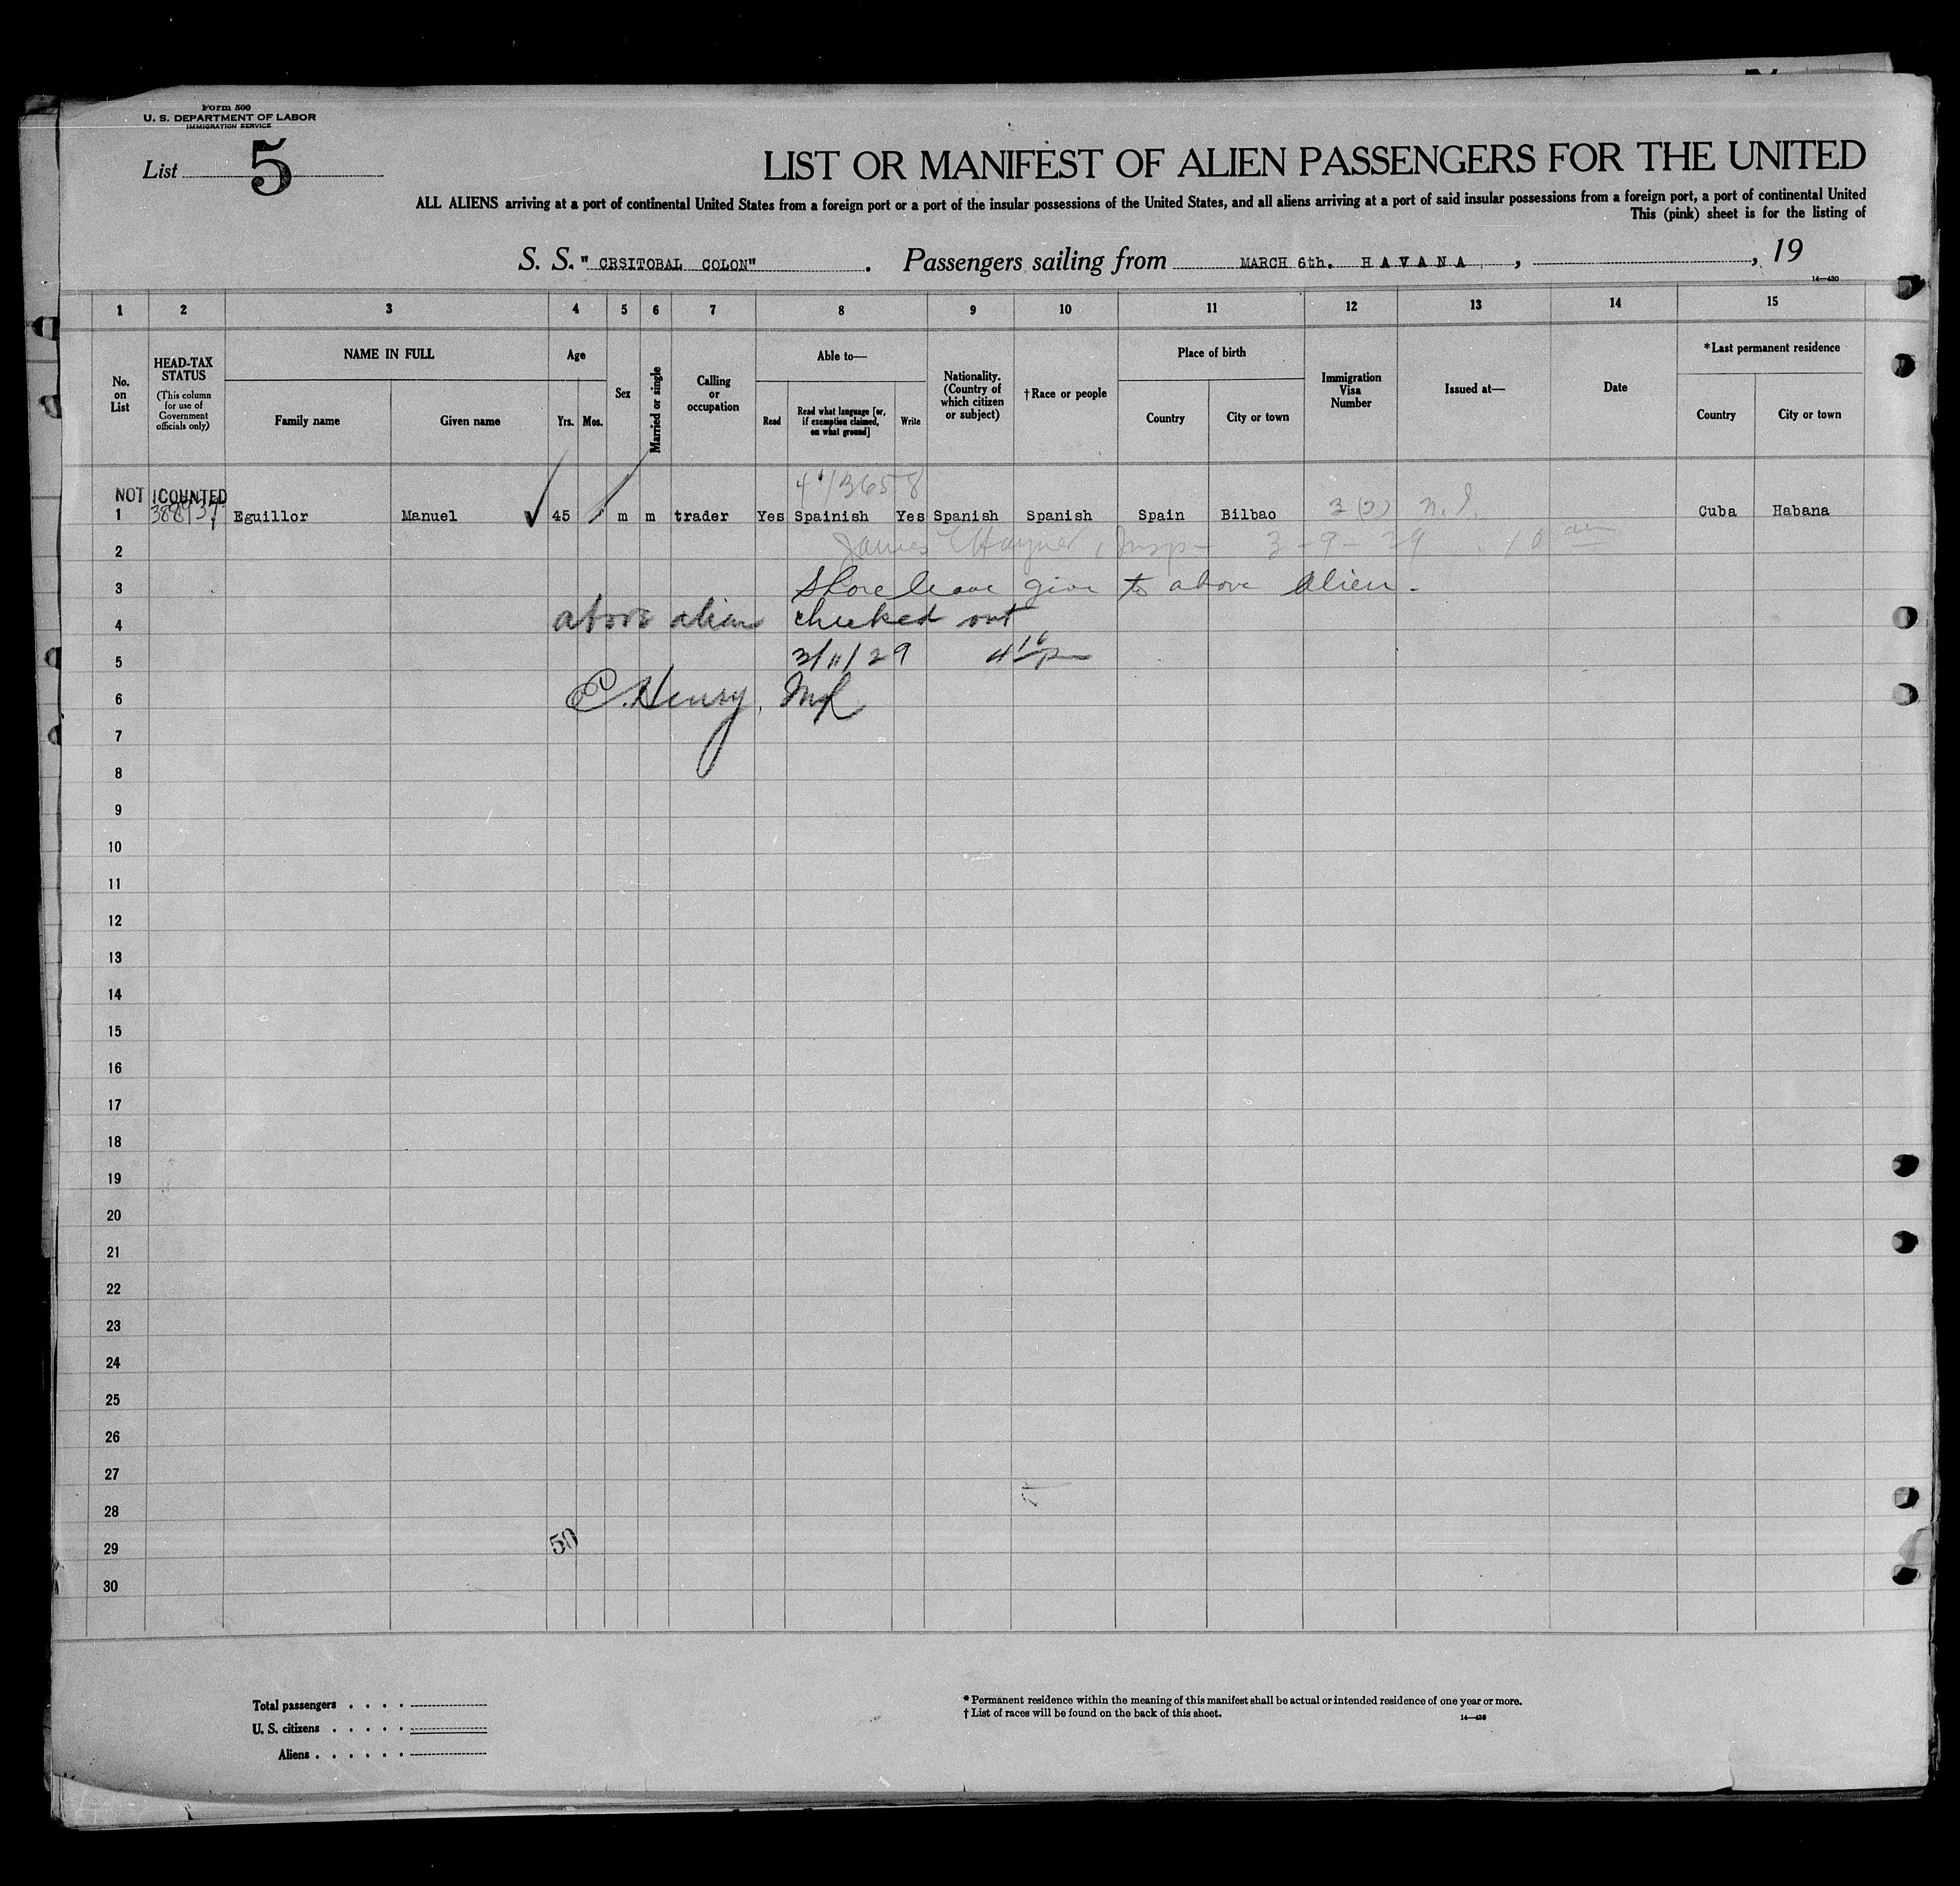 Form 500
U. S. DEPARTMENT OF LABOR
IMMIGRATION SERVICE
List 5
LIST OR MANIFEST OF ALIEN PASSENGERS FOR THE UNITED
ALL ALIENS arriving at a port of continental United States from a foreign port or a port of the insular possessions of the United States, and all aliens arriving at a port of said insular possessions from a foreign port, a port of continental United
This (pink) sheet is for the listing of
S. S. " CRSITOBAL COLON" . Passengers sailing from MARCH 6th. HAVANA , , 19
14—430
1 2 3 4 5 6 7 8 9 10 11 12 13 14 15
No. on List
HEAD-TAX STATUS
(This column for use of Government officials only)
NAME IN FULL
Family name Given name
Age
Yrs. Mos.
Sex
Married or single
Calling or occupation
Able to—
Read Read what language [or, if exemption claimed, on what ground] Write
Nationality. (Country of which citizen or subject)
†Race or people
Place of birth
Country City or town
Immigration Visa Number
Issued at—
Date
*Last permanent residence
Country City or town
NOT COUNTED
4 1/3658
1 Eguillor Manuel 45 m m trader Yes Spainish Yes Spanish Spanish Spain Bilbao Cuba Habana
2 James Insp- 3-9-29 10 am
3 Shore leave give to above alien.
4 above alien checked out
5 3/11/29 4 10 pm
6 C. Henry,
7
8
9
10
11
12
13
14
15
16
17
18
19
20
21
22
23
24
25
26
27
28
29 50
30
Total passengers . . . .
U. S. citizens . . . . .
Aliens . . . . . .
* Permanent residence within the meaning of this manifest shall be actual or intended residence of one year or more.
† List of races will be found on the back of this sheet.
14—430